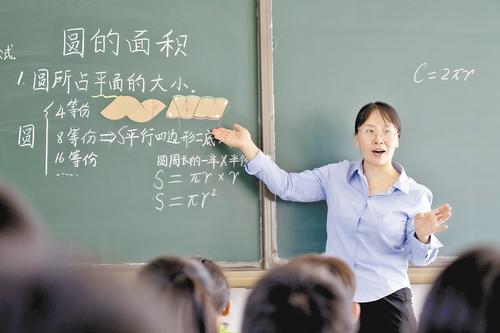 圆的面积
公式.
1. 圆所占平面的大小.
圆
4等份
8等份⇒S平行四边形=底
16等份
......
圆周长的一半×半径
S=πr×r
S=πr²
C=2πr